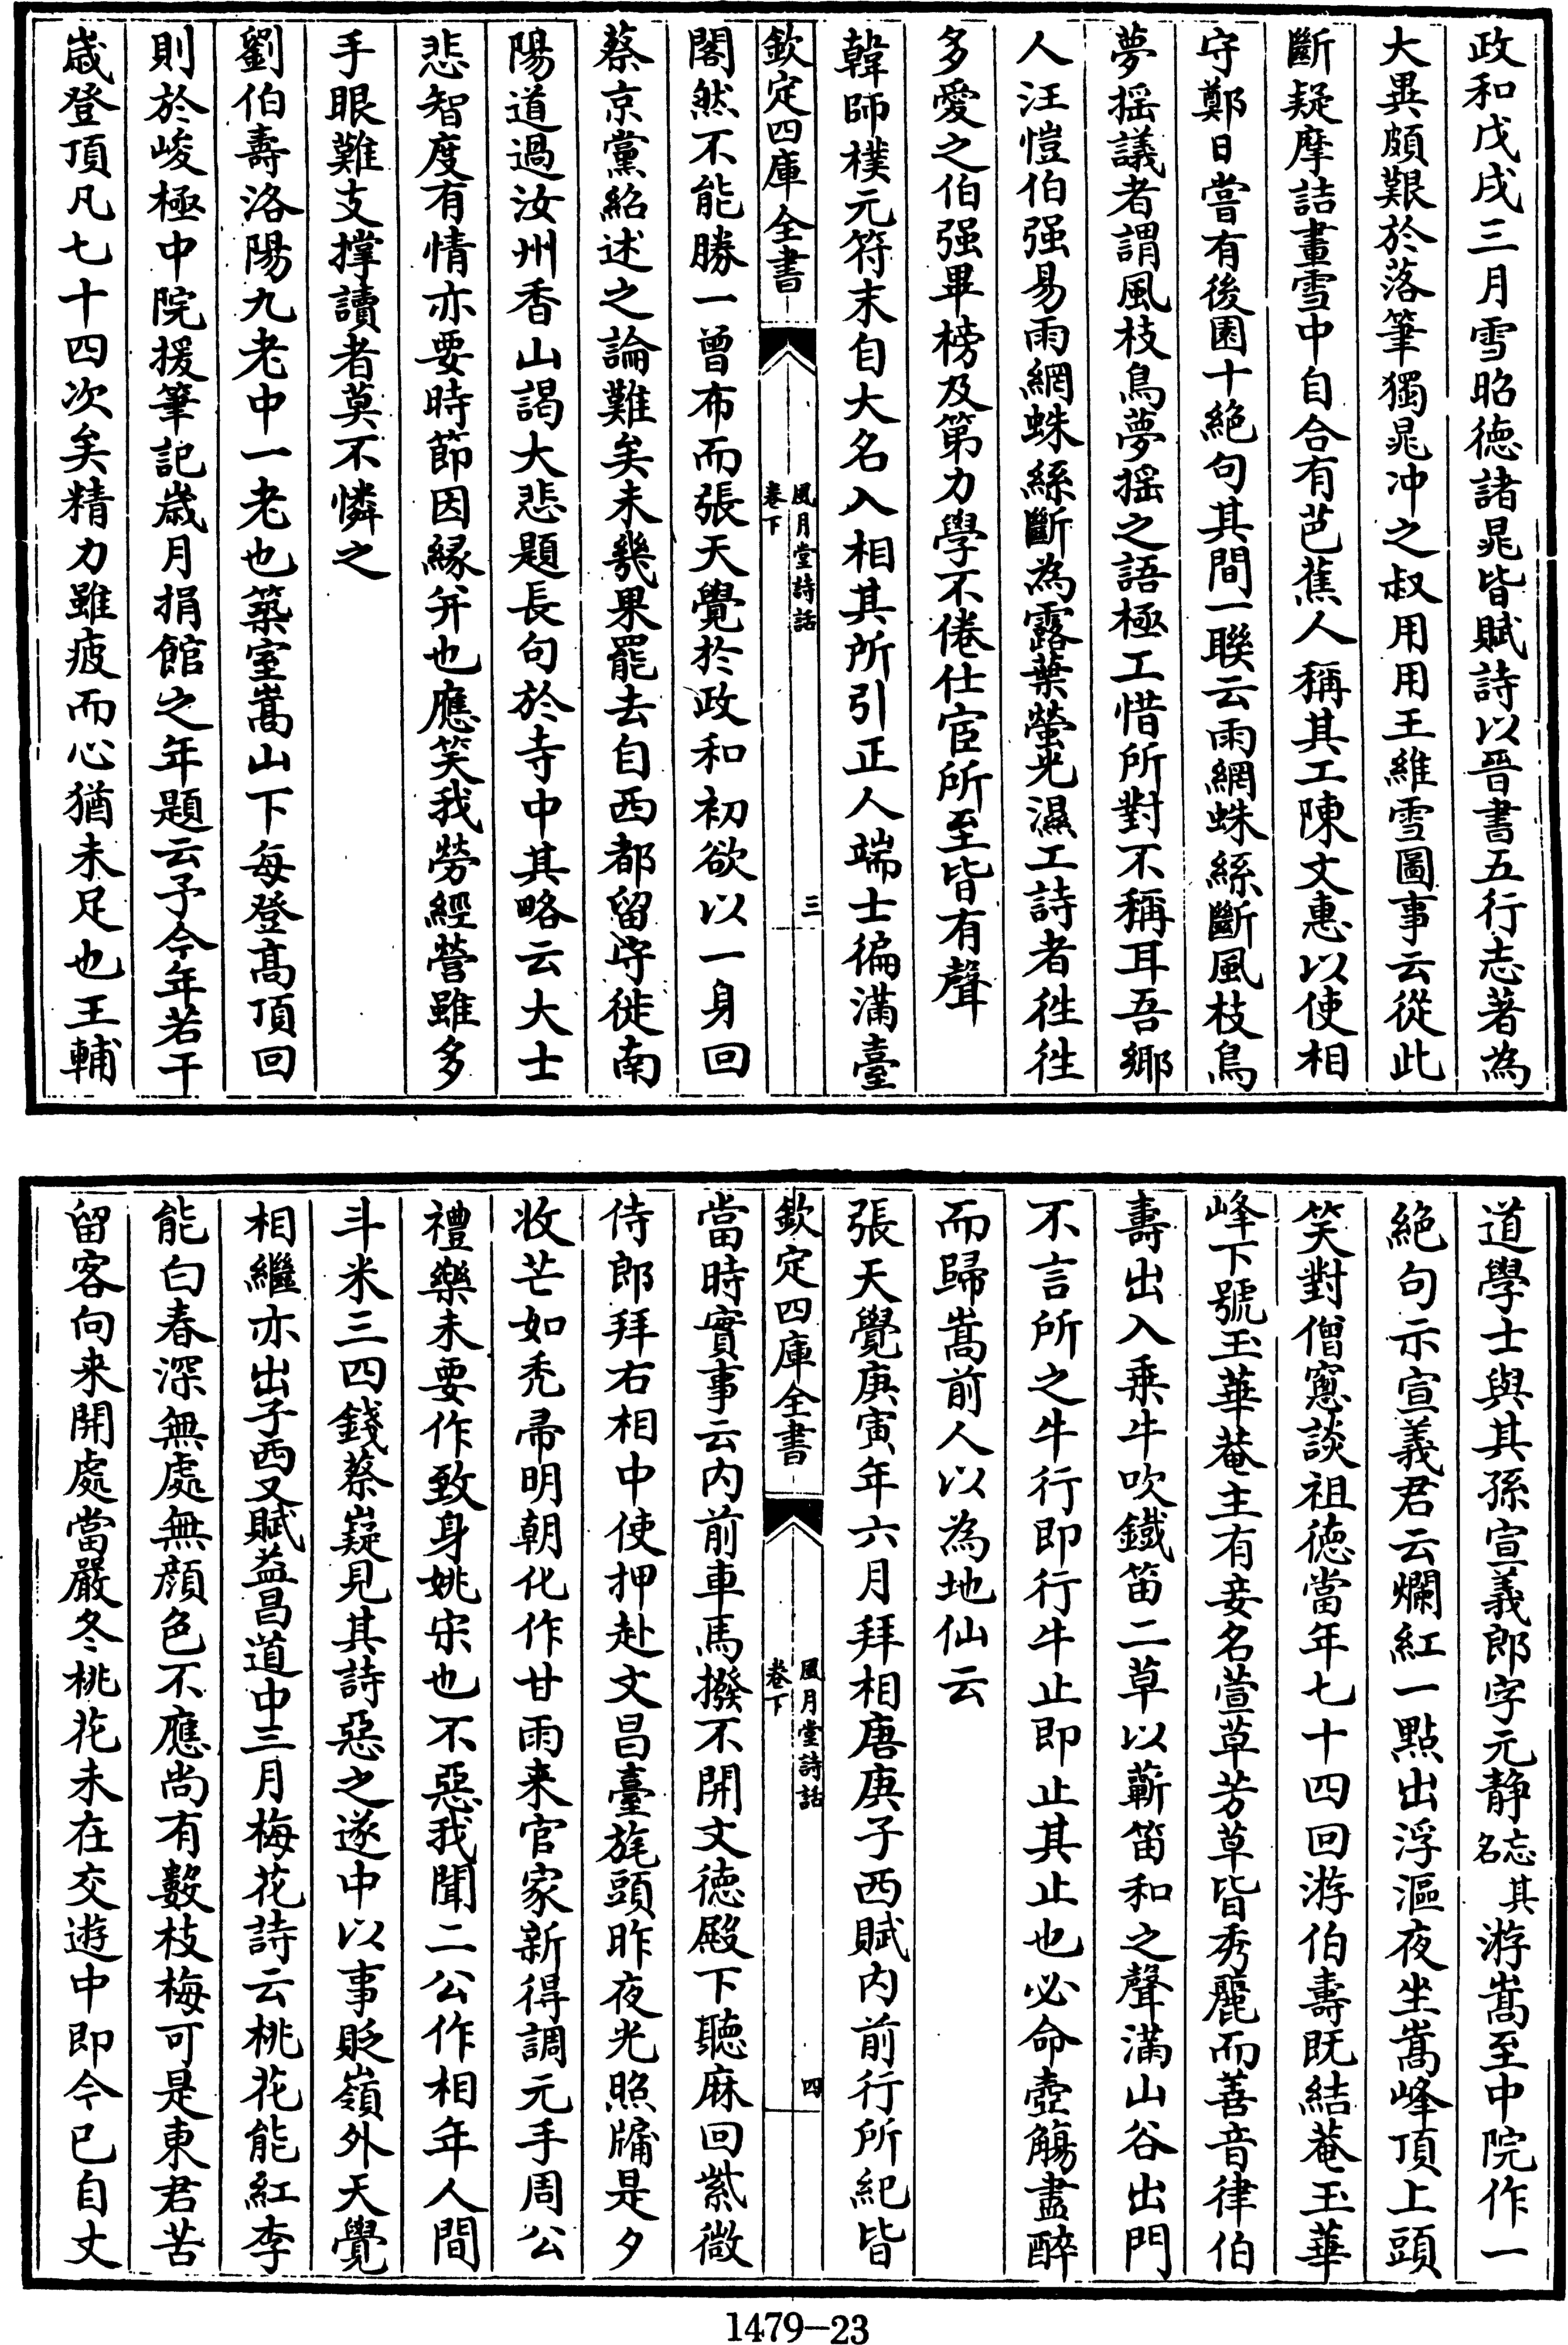 政和戊戌三月雪昭徳諸晁皆賦詩以晉書五行志著為
大異頗艱於落筆獨晁冲之叔用用王維雪圖事云從此
斷疑摩詰畫雪中自合有芭蕉人稱其工陳文惠以使相
守鄭日嘗有後園十絶句其間一聯云雨網蛛絲斷風枝鳥
夢揺議者謂風枝鳥夢揺之語極工惜所對不稱耳吾鄉
人汪愷伯强易雨網蛛絲斷為露葉螢光濕工詩者徃徃
多愛之伯强畢榜及第力學不倦仕宦所至皆有聲
韓師樸元符末自大名入相其所引正人端士徧滿臺
欽定四庫全書
風月堂詩話
卷下
三
閣然不能勝一曽布而張天覺於政和初欲以一身回
蔡京黨紹述之論難矣未幾果罷去自西都留守徙南
陽道過汝州香山謁大悲題長句於寺中其略云大士
悲智度有情亦要時節因縁并也應笑我勞經營雖多
手眼難支撑讀者莫不憐之
劉伯壽洛陽九老中一老也築室嵩山下每登高頂回
則於峻極中院援筆記歲月捐館之年題云予今年若干
歲登頂凡七十四次矣精力雖疲而心猶未足也王輔
道學士與其孫宣義郎字元靜忘其名游嵩至中院作一
絶句示宣義君云爛紅一點出浮漚夜坐嵩峰頂上頭
笑對僧窻談祖徳當年七十四回游伯壽既結菴玉華
峰下號玉華菴主有妾名萱草芳草皆秀麗而善音律伯
壽出入乗牛吹鐵笛二草以蘄笛和之聲滿山谷出門
不言所之牛行即行牛止即止其止也必命壺觴盡醉
而歸嵩前人以為地仙云
張天覺庚寅年六月拜相唐庚子西賦内前行所紀皆
欽定四庫全書
風月堂詩話
卷下
四
當時實事云内前車馬撥不開文徳殿下聽麻回紫微
侍郎拜右相中使押赴文昌臺旄頭昨夜光照牖是夕
收芒如禿帚明朝化作甘雨来官家新得調元手周公
禮樂未要作致身姚宋也不惡我聞二公作相年人間
斗米三四錢蔡嶷見其詩惡之遂中以事貶嶺外天覺
相繼亦出子西又賦益昌道中三月梅花詩云桃花能紅李
能白春深無處無顔色不應尚有數枝梅可是東君苦
留客向来開處當嚴冬桃花未在交遊中即今已自丈
1479-23